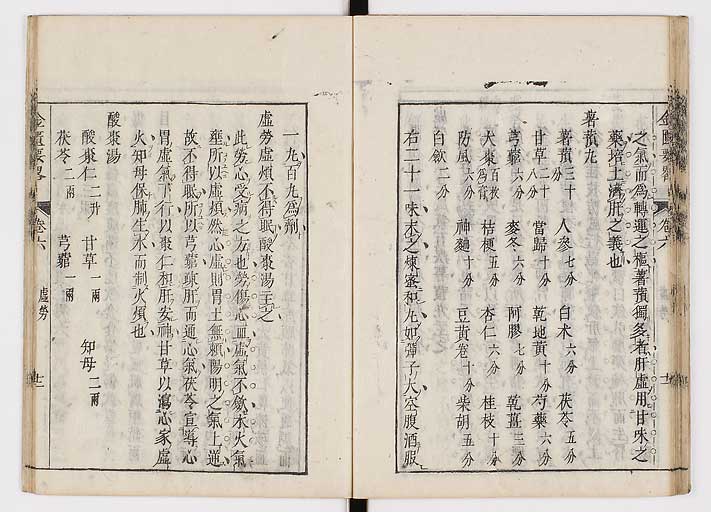 之氣而為轉運之樞薯蕷獨多者肝虛用甘味之
藥培土濟肝之義也
薯蕷丸
薯蕷三十分 人參七分 白朮六分 茯苓五分
甘草二十八分 當歸十分 乾地黃十分 芍藥六分
芎藭六分 麥冬六分 阿膠七分 乾薑三分
大棗百枚為膏 桔梗五分 杏仁六分 桂枝十分
防風六分 神麴十分 豆黃卷十分 柴胡五分
白斂二分
右二十一味末之煉蜜和丸如彈子大空腹酒服
一丸一百丸為劑
虛勞虛煩不得眠酸棗湯主之
此勞心受病之方也勞傷心血虛氣不斂水火氣
壅所以虛煩然心虛則胃土無賴陽明之氣上逆
故不得眠所以芎藭疎肝而通心氣茯苓宣導心
胃虛氣下行以棗仁和肝安神甘草以瀉心家虛
火知母保肺生水而制火煩也
酸棗湯
酸棗仁二升 甘草一兩 知母二兩
茯苓二兩 芎藭一兩
金匱要畧 卷六 虛勞 十二